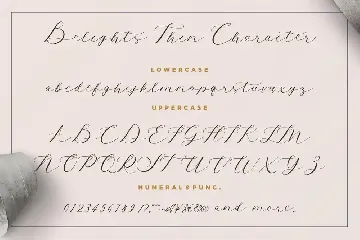 Delights Thin Character
LOWERCASE
abcdefghijklmnopqrstuvwxyz
UPPERCASE
ABCDEFGHIJKLM
NOPQRSTUVWXYZ
NUMERAL & PUNC.
0123456789 and more.